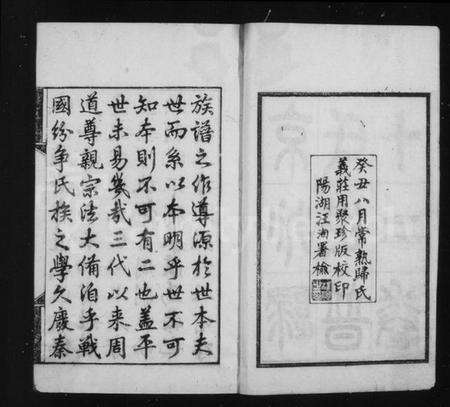 癸丑八月常熟歸氏
義莊用聚珍版校印
陽湖汪洵署檢
族譜之作導源於世本夫
世而系以本明乎世不可
知本則不可有二也蓋平
世未易幾哉三代以來周
道尊親宗法大備洎乎戰
國紛爭氏族之學久廢秦